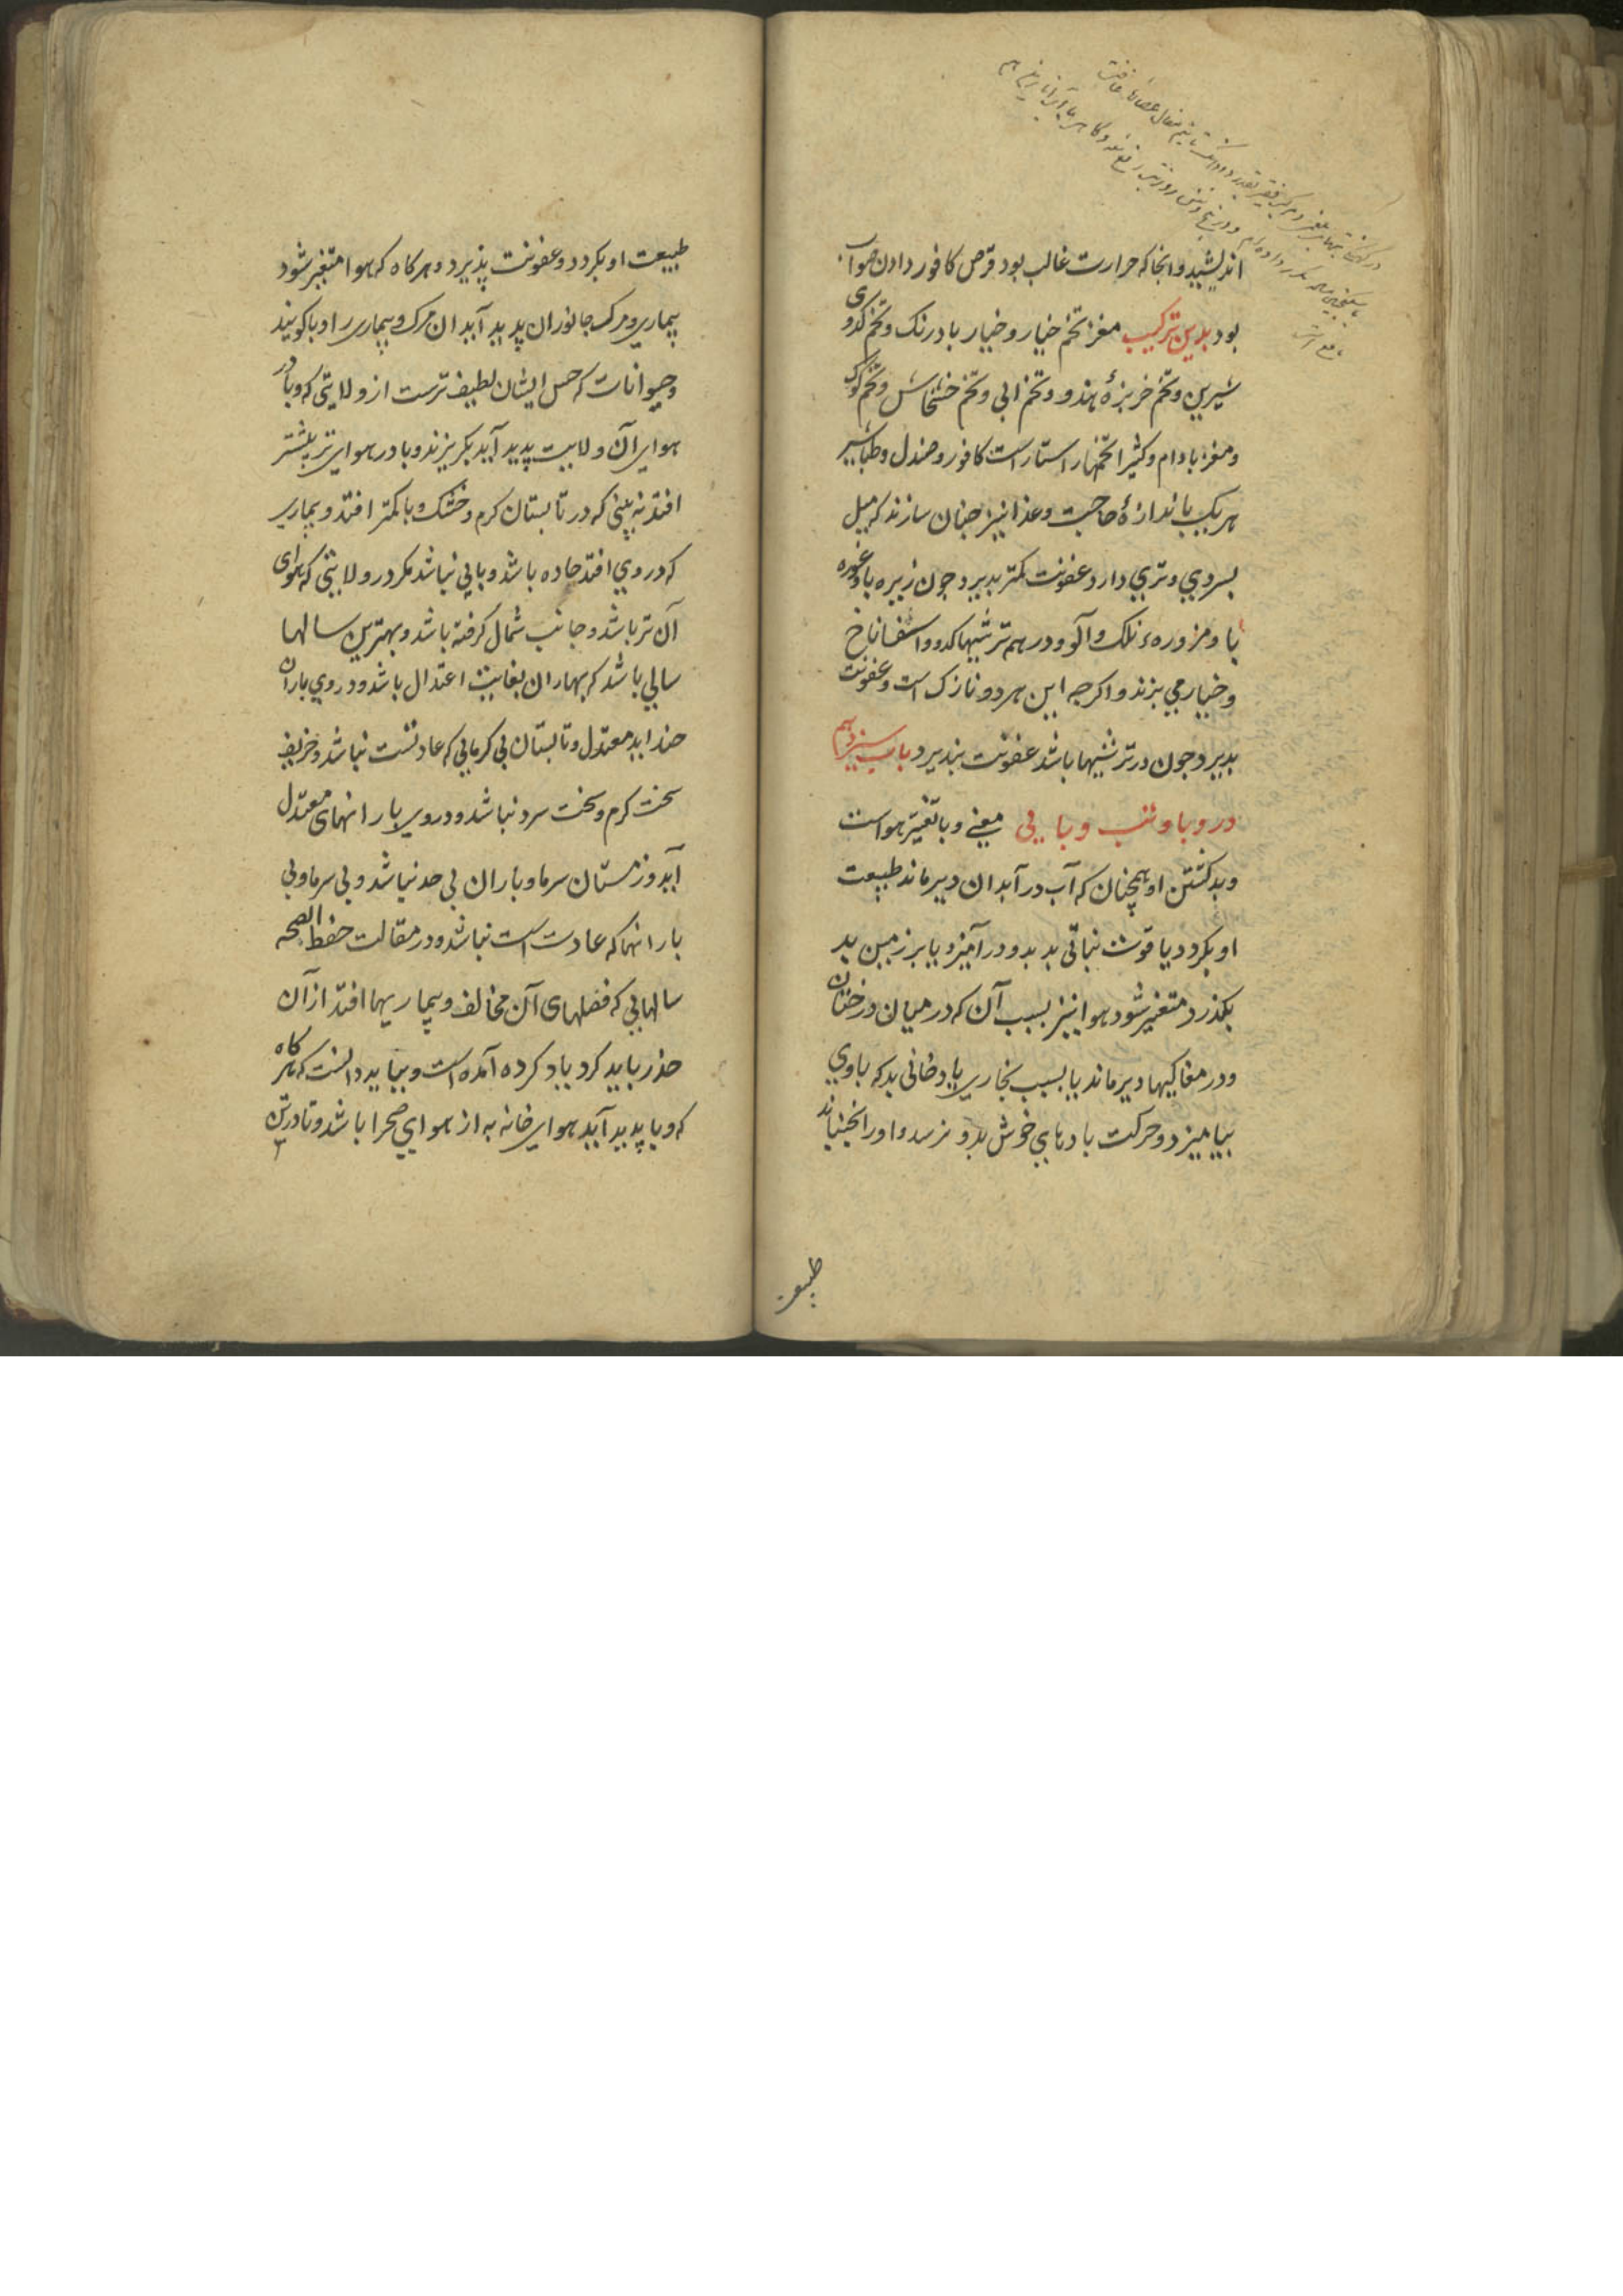 اندیشید وانجا که حرارت غالب بود قرص کافور دادن صواب
بود بدین ترکیب مغز تخم خیار و خیار بادرنک و تخم کدوی
شیرین و تخم خربزهٔ هندو و تخم ابی و تخم خشخاش و تخم کوک
و مغز بادام و کثیرا تخمها راستا راست کافور و صندل و طباشیر
هریک باندازهٔ حاجت و غذا نیز جنان سازند که میل
بسردی و تری دارد و عفونت کمتر بدیرد جون زیره با و غوره
با و مزوره نلک و آلو و درهم ترشیها کدو و اسفاناخ
و خیار می بزند و اکرجه این هر دو نازک است و عفونت
بدیرد جون در ترشیها باشد عفونت بنذیرد باب سیزدهم
در وبا و تب وبایی معنی وبا تغیر هواست
و بد کشتن او همچنان که آب در آبدان دیر ماند طبیعت
او بکردد یا قوت نباتی بد بدو در آمیزد یا بر زمین بد
بکذرد متغیر شود هوا نیز بسبب آن که در میان درختان
و در مغاکیها دیر ماند یا بسبب بخاری یا دخانی بد که با وی
بیامیزد و حرکت بادهای خوش بدو نرسد و او را نجنباند
طبیعت
طبیعت او بکردد و عفونت پذیرد و هرکاه که هوا متغیر شود
بیماری و مرک جانوران پدید آید ان مرک و بیماری را وبا کویند
و حیوانات که حس ایشان لطیف ترست از ولایتی که وبا در
هوای آن ولایت پدید آید بکریزند و وبا در هوای تر بیشتر
افتد نه بینی که در تابستان کرم و خشک وبا کمتر افتد و بیماری
که در وی افتد حاده باشد و وبایی نباشد مکر در ولایتی که هوای
آن تر باشد و جانب شمال کرفته باشد و بهترین سالها
سالی باشد که بهاران بغایت اعتدال باشد و در وی باران
جند اید معتدل و تابستان بی کرمایی که عادتست نباشد و خریف
سخت کرم و سخت سرد نباشد و در وی بارانهای معتدل
آید و زمستان سرما و باران بی حد نباشد و بی سرما و بی
بارانها که عادت است نباشد و در مقالت حفظ الصحه
سالهایی که فصلهای آن مخالف و بیماریها افتد از آن
حذر باید کرد یاد کرده آمده است و بباید دانست که هرکاه
که وبا پدید آید هوای خانه به از هوای صحرا باشد و تا در تن